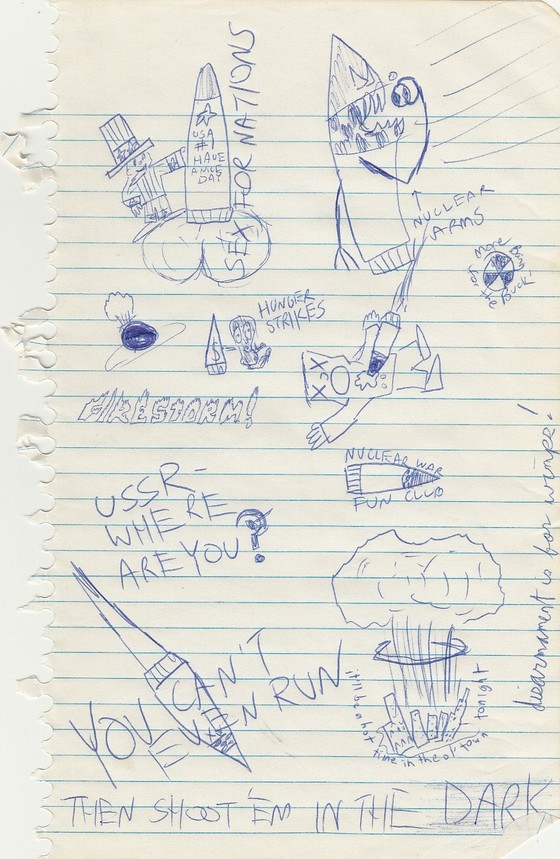 USA
#1
HAVE
A NICE
DAY
SEX FOR NATIONS
↑
NUCLEAR
ARMS
More Bang
for the
Buck!
HUNGER
STRIKES
$
X X
FIRESTORM!
NUCLEAR WAR
FUN CLUB
USSR-
WHERE
ARE YOU?
disarmament is for wimps!
YOU CAN'T
EVEN RUN
it'll be a hot
time in the ol' town
tonight
THEN SHOOT 'EM IN THE DARK